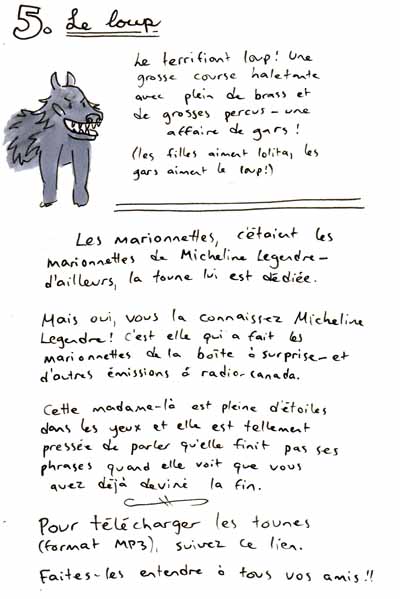 5. Le loup
Le terrifiant loup! Une
grosse course haletante
avec plein de brass et
de grosses percus - une
affaire de gars!
(les filles aiment lolita, les
gars aiment le loup!)
Les marionnettes, c'étaient les
marionnettes de Micheline Legendre -
d'ailleurs, la toune lui est dédiée.
Mais oui, vous la connaissez Micheline
Legendre! C'est elle qui a fait les
marionnettes de la boîte à surprise - et
d'autres émissions à radio-canada.
Cette madame-là est pleine d'étoiles
dans les yeux et elle est tellement
pressée de parler qu'elle finit pas ses
phrases quand elle voit que vous
avez déjà deviné la fin.
Pour télécharger les tounes
(format MP3), suivez ce lien.
Faites-les entendre à tous vos amis!!